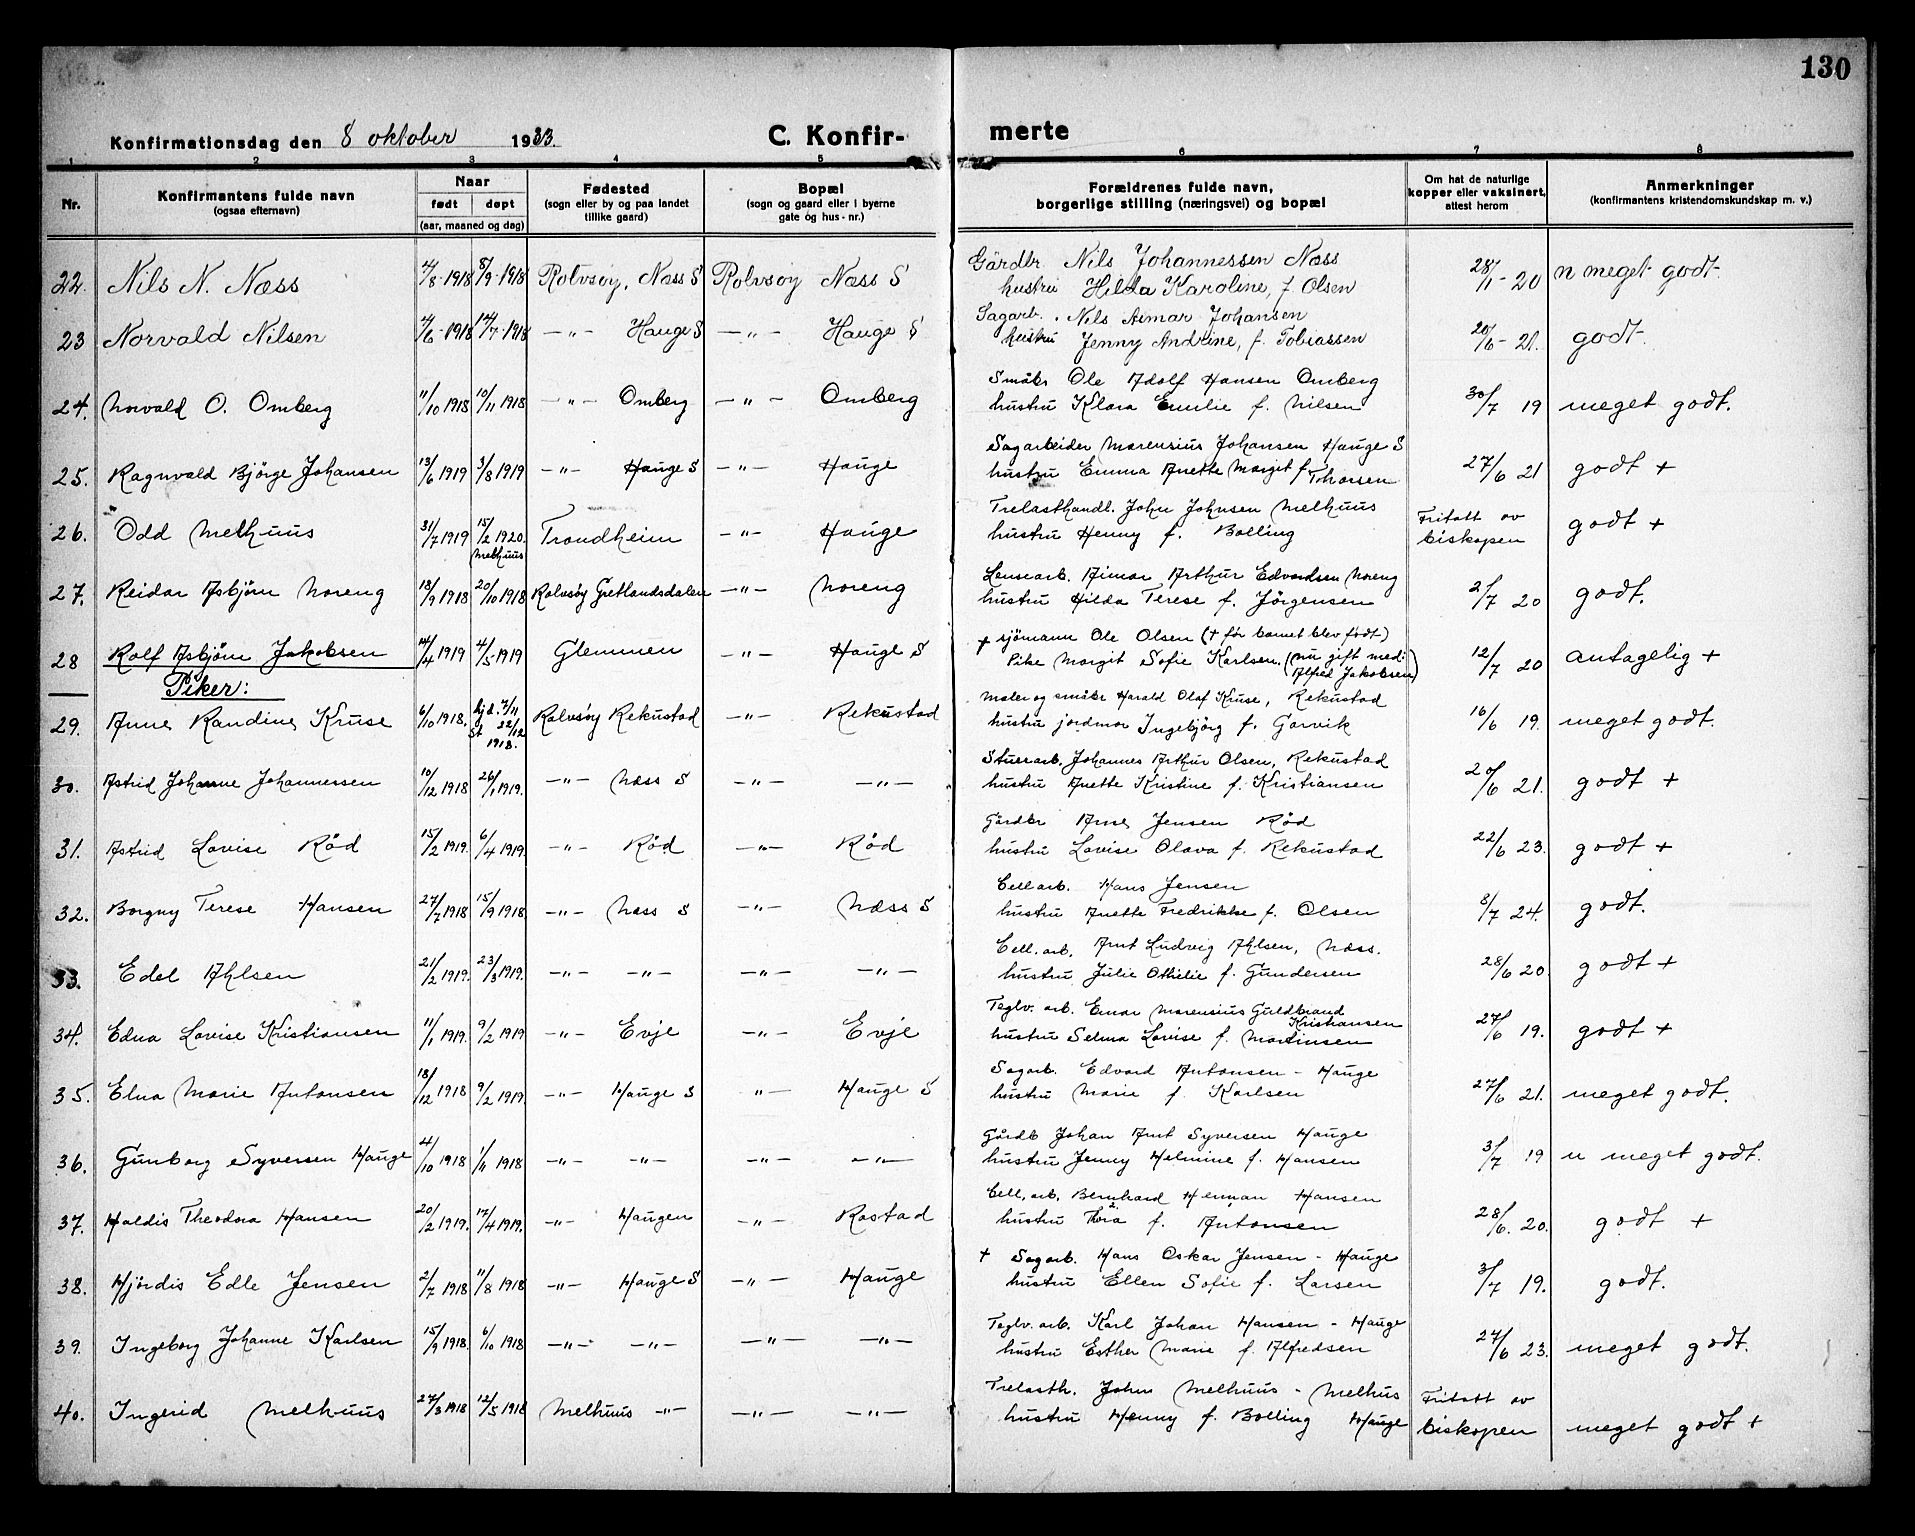 130
Konfirmationsdag den 8 oktober 1933. C. Konfir- merte
1 2 3 4 5 6 7 8
Nr. Konfirmantens fulde navn (ogsaa efternavn) Naar født døpt (aar, maaned og dag) Fødested (sogn eller by og paa landet tillike gaard) Bopæl (sogn og gaard eller i byerne gate og hus-nr.) Forældrenes fulde navn, borgerlige stilling (næringsvei) og bopæl Om hat de naturlige kopper eller vaksinert, attest herom Anmerkninger (konfirmantens kristendomskundskap m. v.)
22. Nils N. Næss /8-1918 8/9-1918 Rolvsøy, Næss S Rolvsøy Næss S Gårdbr. Nils Johannessen Næss 28/1-20 n meget godt.
hustru Hilda Karoline, f. Olsen
23 Norvald Nilsen /6-1918 14/7-1918 -"- Hauge S -"- Hauge S Sagarb. Nils Aimar Johansen 20/6-21. godt.
hustru Jenny Andrine, f. Tobiassen
24. Norvald O. Omberg 11/10 1918 10/11 1918 -"- Omberg -"- Omberg Småbr Ole Adolf Hansen Omberg 30/7 19 meget godt.
hustru Klara Emilie f. Nilsen
25. Ragnvald Bjørge Johansen 13/6 1919 3/8 1919 -"- Hauge S -"- Hauge Sagarbeider Marensius Johansen Hauge S 27/6 21 godt +
hustru Emma Anette Margit f Thorsen
26. Odd Melhuus 31/7 1919 15/2 1920. Melhuus Trondheim -"- Hauge Trelasthandl. John Johnsen Melhuus Fritatt av biskopen godt +
hustru Henny f. Bolling
27. Reidar Asbjørn Noreng 18/9 1918 20/10 1918 Rolvsøy Gretlandsdalen -"- Noreng Lensearb. Aimar Arthur Edvardsen Noreng 2/7 20 godt.
hustru Hilda Terese f. Jörgensen
28 Rolf Asbjørn Jakobsen 14/4 1919 4/5 1919 Glemmen -"- Hauge S + sjömann Ole Olsen (+ før barnet blev født) 12/7 20 antagelig +
Pike Margit Sofie Karlsen. (nu gift med: Alfred Jakobsen)
Piker:
29. Anne Randine Kruse 6/10 1918. hjd. 7/11 st 22/12 1918. Rolvsöy Rekustad -"- Rekustad Maler og småbr Harald Olaf Kruse, Rekustad 16/6 19. meget godt.
hustru jordmor Ingebjörg f. Garvik
30. Astrid Johanne Johannessen 10/12 1918 26/1 1919. -"- Næss S -"- -"- Stuerarb. Johannes Arthur Olsen, Rekustad 20/6 21. godt +
hustru Anette Kristine f. Kristiansen
31. Astrid Lovise Rød 15/2 1919. 6/4 1919. -"- Rød -"- Rød Gårdbr Arne Jensen Rød 22/6 23. godt +
hustru Lovise Olava f. Rekustad
32. Borgny Terese Hansen 27/7 1918 15/9 1918 -"- Næss S -"- Næss S Cell arb. Hans Jensen 8/7 24. godt.
hustru Anette Fredrikke f. Olsen
33. Edel Ahlsen 21/2 1919. 23/3 1919. -"- -"- -"- -"- Cell. arb. Arnt Ludvig Ahlsen, Næss. 28/6 20. godt +
hustru Julie Othilie f. Gundersen
34. Edna Lovise Kristiansen 11/1 1919. 9/2 1919 -"- Evje -"- Evje Teglv. arb. Einar Marensius Guldbrand Kristiansen 27/6 19. godt +
hustru Selma Lovise f. Martinsen
35. Elna Marie Antonsen 18/12 1918 9/2 1919. -"- Hauge S "- Hauge S Sagarb. Edvard Antonsen - Hauge 27/6 21. meget godt.
hustru Marie f Karlsen
36. Gunborg Syversen Hauge 4/10 1918 1/11 1918 -"- -"- -"- -"- Gårdb Johan Arnt Syversen Hauge 3/7 19 n meget godt.
hustru Jenny Helmine f. Hansen
37. Haldis Theodora Hansen 20/2 1919. 17/4 1919. -"- Haugen -"- Rostad Cell. arb. Bernhard Herman Hansen 28/6. 20. godt +
hustru Thora f. Antonsen
38. Hjördis Edle Jensen 2/7 1918 11/8 1918 -"- Hauge S -"- Hauge + Sagarb. Hans Oskar Jensen - Hauge 3/7 19. godt.
hustru Ellen Sofie f. Larsen
39. Ingeborg Johanne Karlsen 15/9 1918. 6/10 1918 -"- -"- -"- -"- Teglv. arb. Karl Johan Hansen - Hauge 27/6 23. meget godt.
hustru Esther Marie f. Alfredsen
40. Ingerid Melhuus 27/3 1918 12/5 1918 Melhuus -"- -"- -"- Trelasth. John Melhuus - Melhus Fritatt av biskopen meget godt +
hustru Henny f. Bolling Hauge